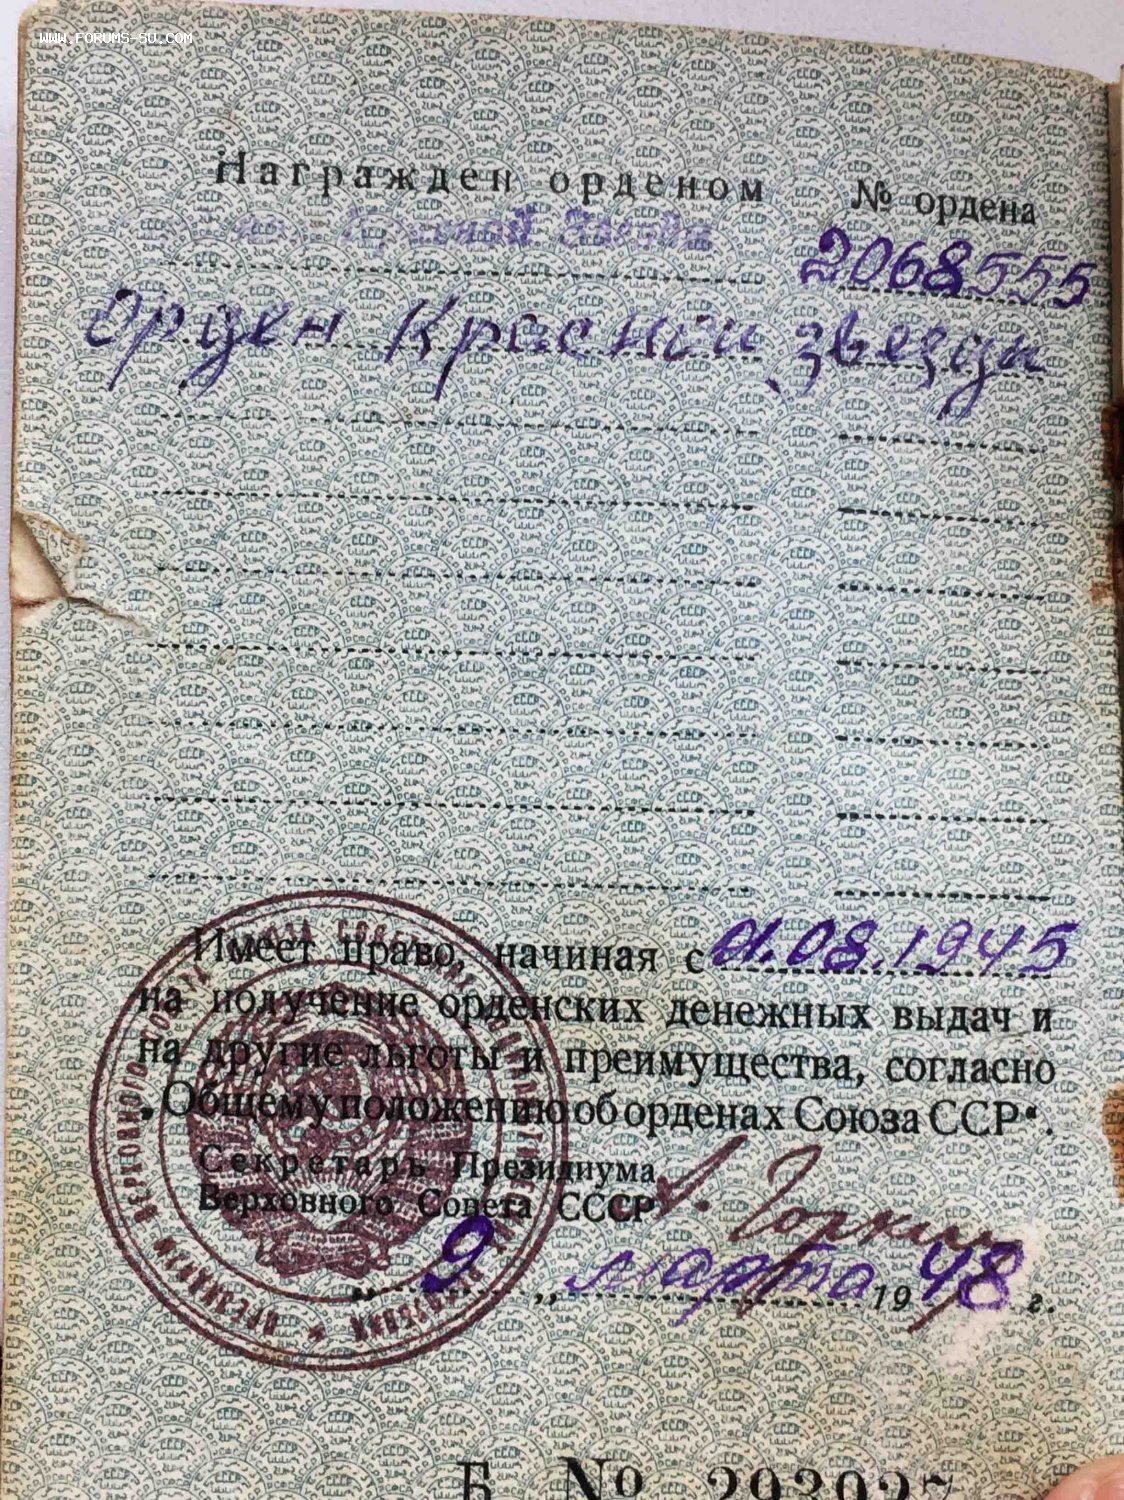 WWW.FORUMS-SU.COM
Награжден орденом № ордена
Красной Звезды
2068555
Орден Красной звезды
Имеет право, начиная с 01.08.1945
на получение орденских денежных выдач и
на другие льготы и преимущества, согласно
„Общему положению об орденах Союза ССР“.
Секретарь Президиума
Верховного Совета СССР А. Горкин
„ 9 „ марта 1948 г.
Б №